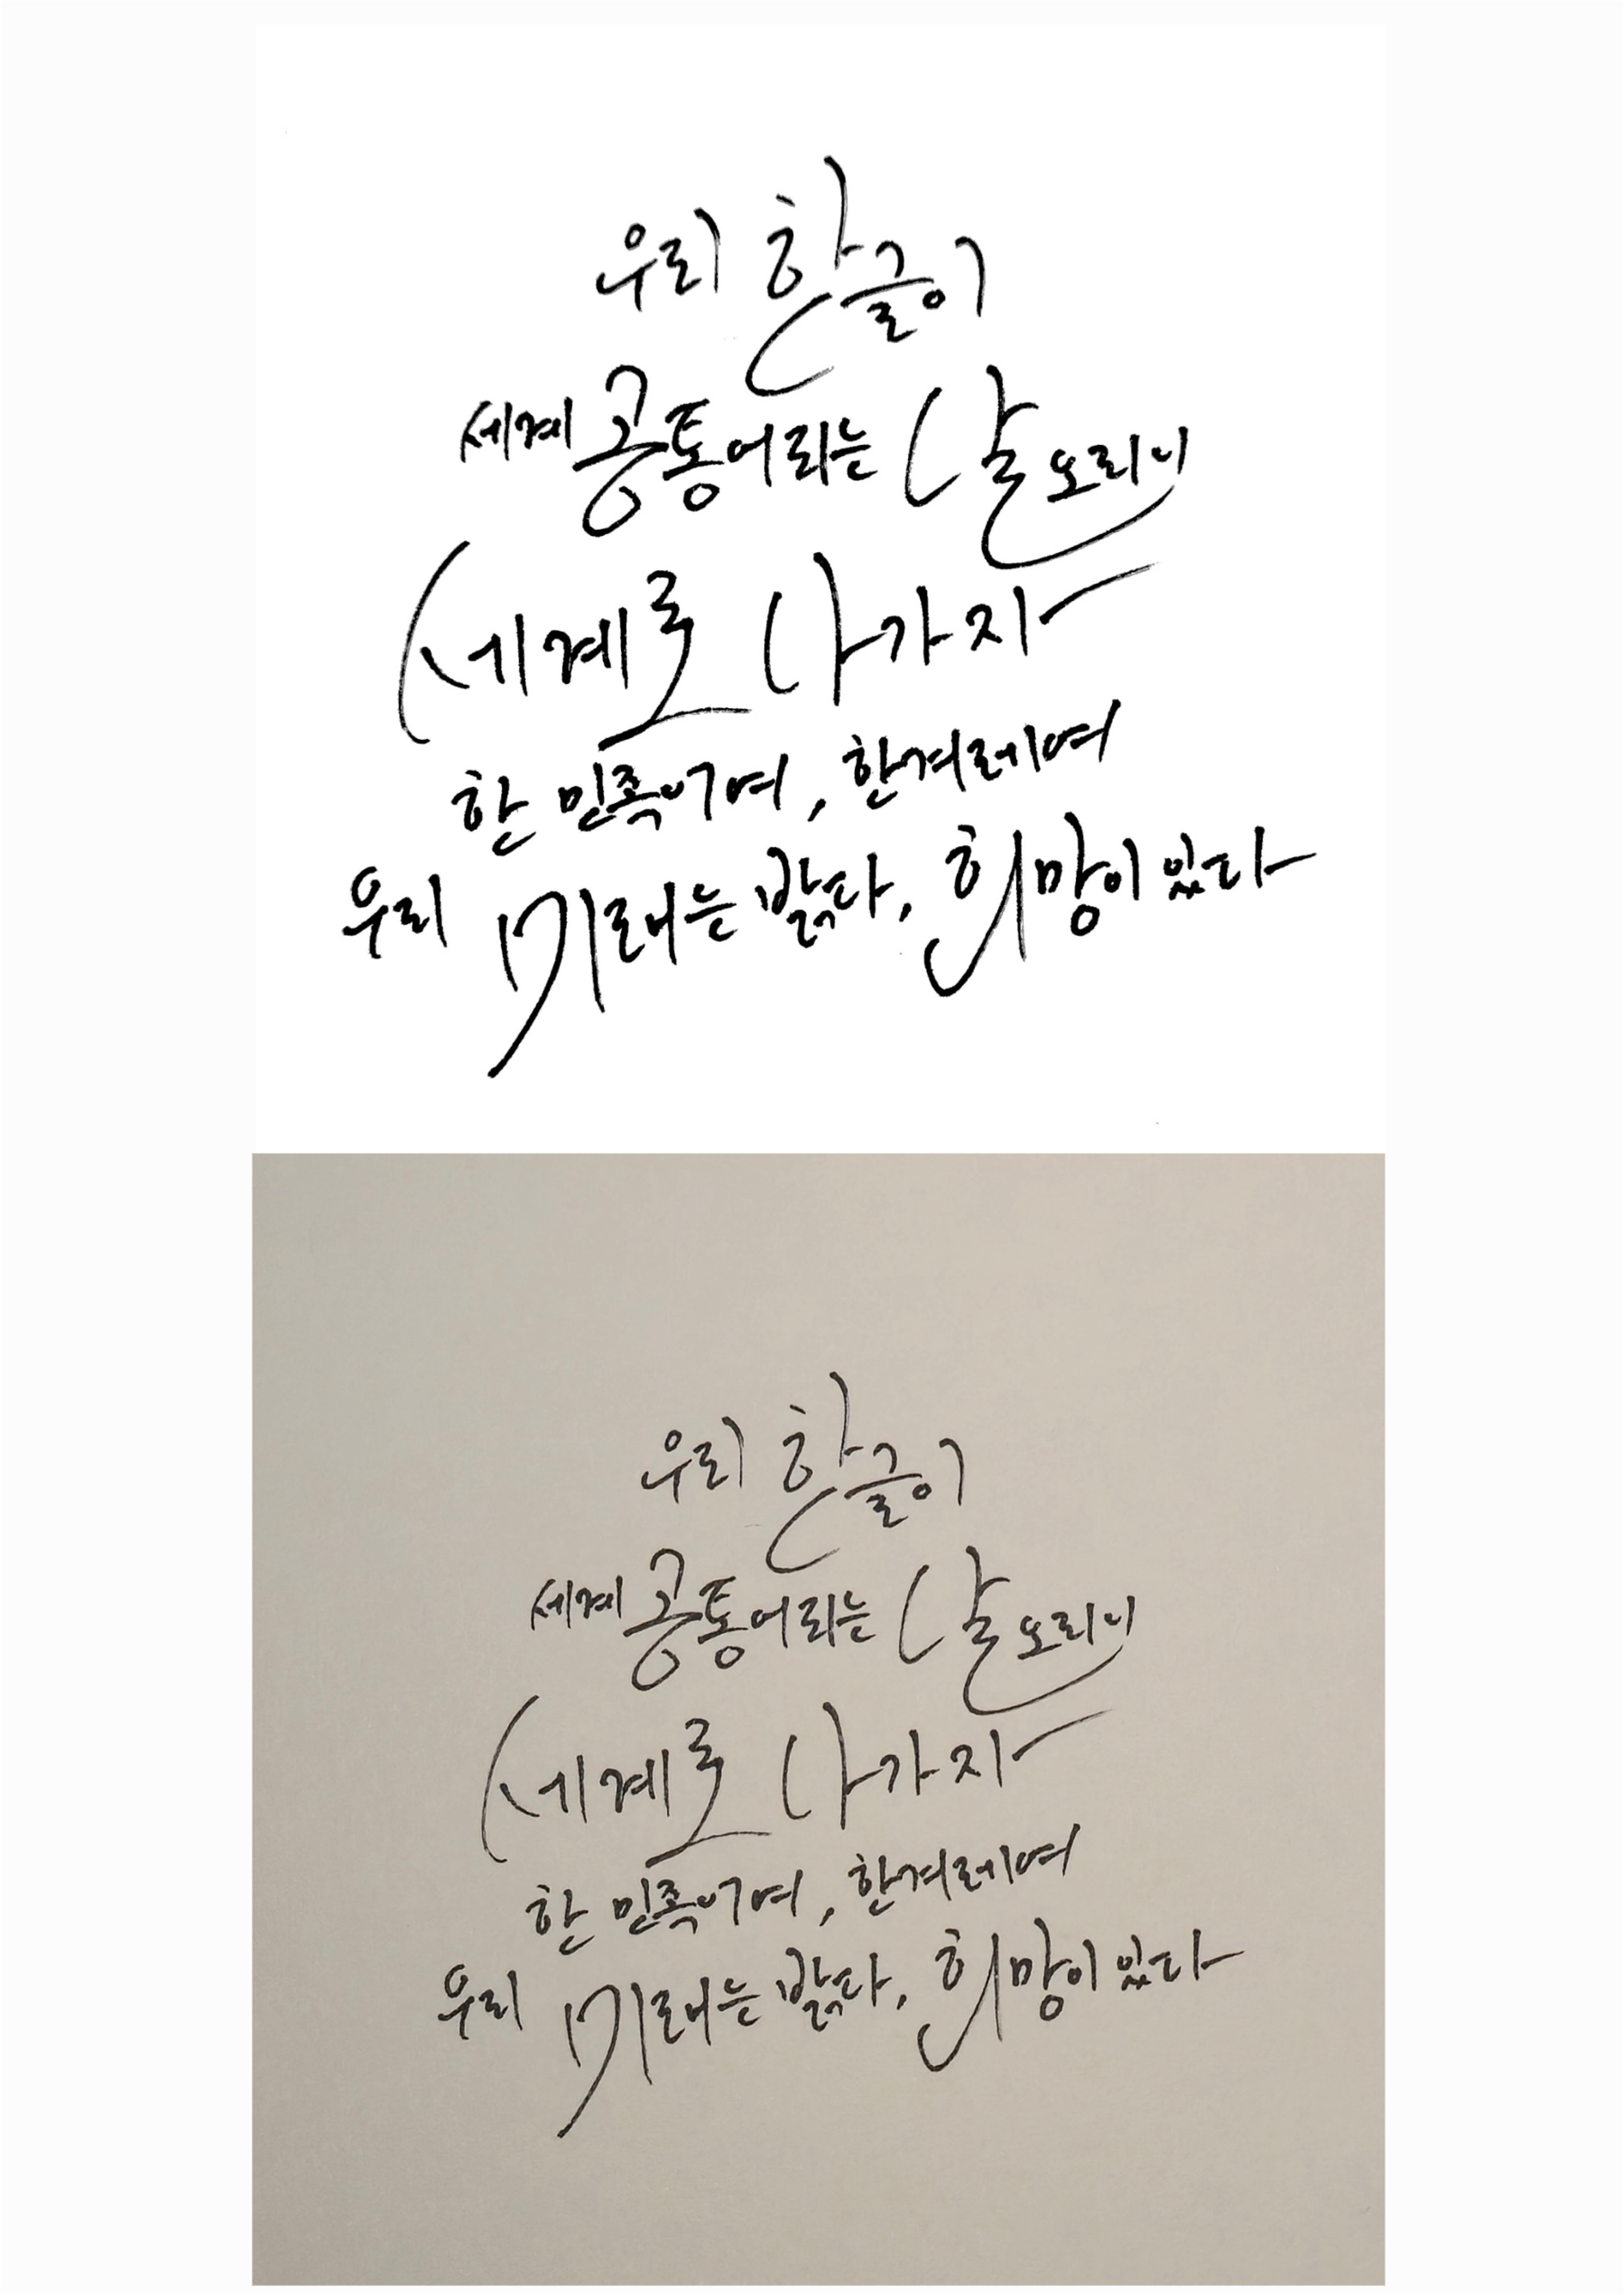 우리 한글이
세계 공통어되는 날 오리니
세계로 나가자
한 민족이여, 한겨레여
우리 미래는 밝다, 희망이 있다
우리 한글이
세계 공통어되는 날 오리니
세계로 나가자
한 민족이여, 한겨레여
우리 미래는 밝다, 희망이 있다